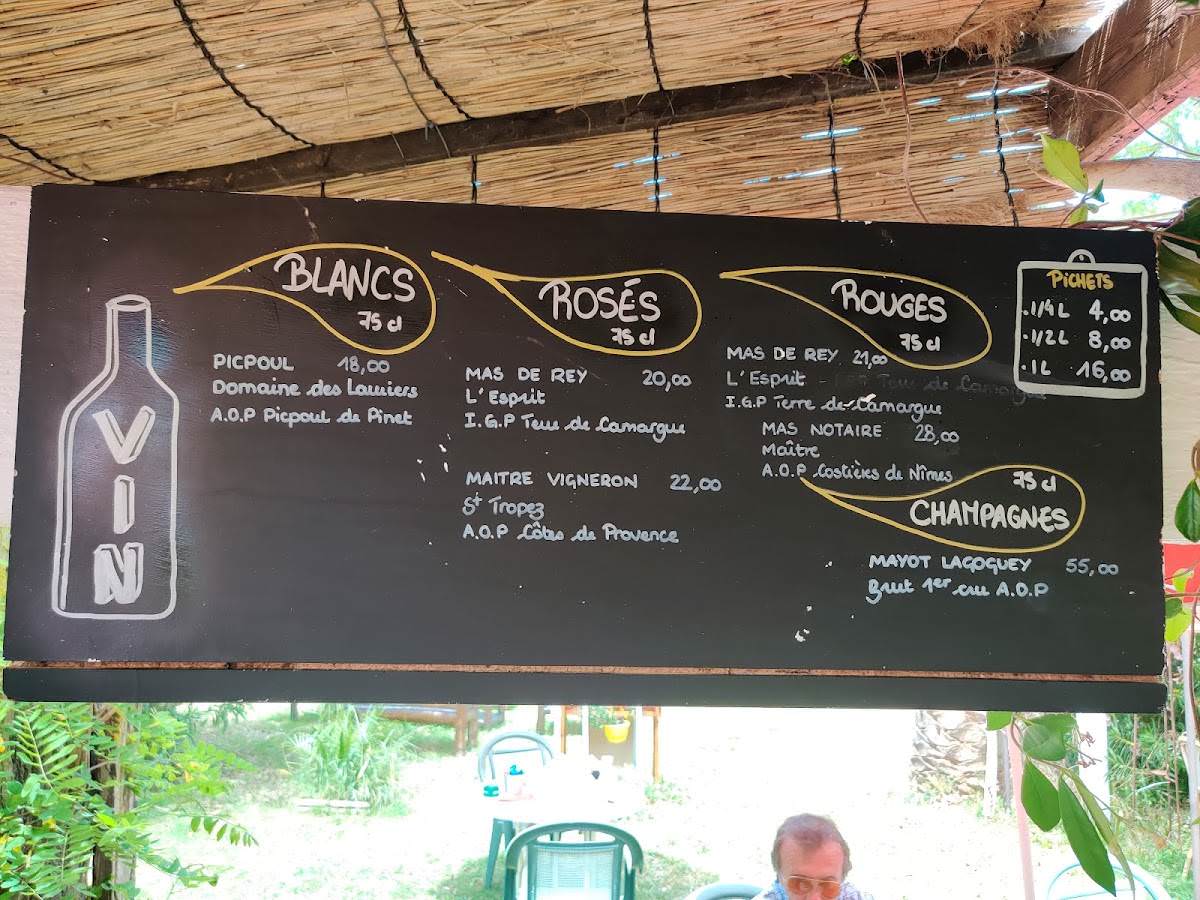 VIN
BLANCS
75 cl
PICPOUL 18,00
Domaine des Lauriers
A.O.P Picpoul de Pinet
ROSÉS
75 cl
MAS DE REY 20,00
L'Esprit
I.G.P Terre de Camargue
MAITRE VIGNERON 22,00
St Tropez
A.O.P Côtes de Provence
ROUGES
75 cl
MAS DE REY 21,00
L'Esprit
I.G.P Terre de Camargue
MAS NOTAIRE 28,00
Maître
A.O.P Costières de Nîmes
75 cl
CHAMPAGNES
MAYOT LAGOGUEY 55,00
Brut 1er cru A.O.P
PICHETS
.1/4 L 4,00
.1/2 L 8,00
.1L 16,00